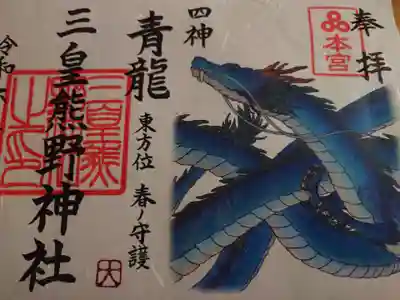 奉拝
本宮
四神
青龍
東方位 春ノ守護
三皇熊野神社
令和六